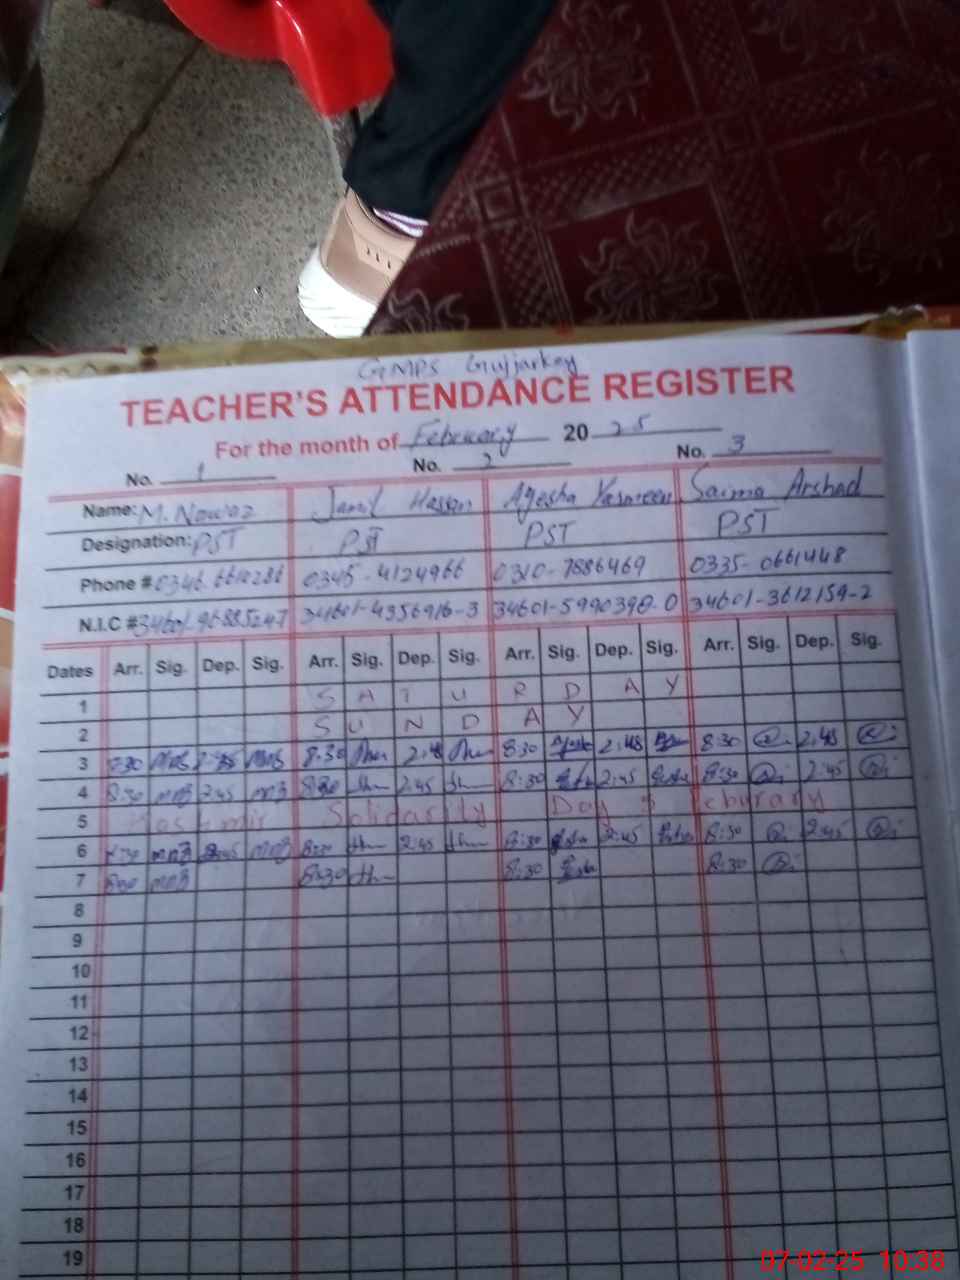 GMPS Gujjarkey
TEACHER'S ATTENDANCE REGISTER
For the month of February 2025
No. 1 No. 2 No. 3
Name: M. Nawaz Jamil Hassan Ayesha Yasmeen Saima Arshad
Designation: PST PST PST PST
Phone # 0345-4124966 0310-7886469 0335-0661448
N.I.C # 34601-4356916-3 34601-5990398-0 34601-3612159-2
Dates Arr. Sig. Dep. Sig. Arr. Sig. Dep. Sig. Arr. Sig. Dep. Sig. Arr. Sig. Dep. Sig.
1 SATURDAY
2 SUNDAY
3 8:30 8:30 2:45 8:30 2:45 8:30 2:45
4 8:30 2:45 8:30 2:45 8:30 2:45 8:30 2:45
5 Kashmir Solidarity Day 5 Feburary
6 8:30 2:45 8:30 2:45 8:30 2:45 8:30 2:45
7 8:30 8:30 8:30 8:30
8
9
10
11
12
13
14
15
16
17
18
19
07-02-25 10:38